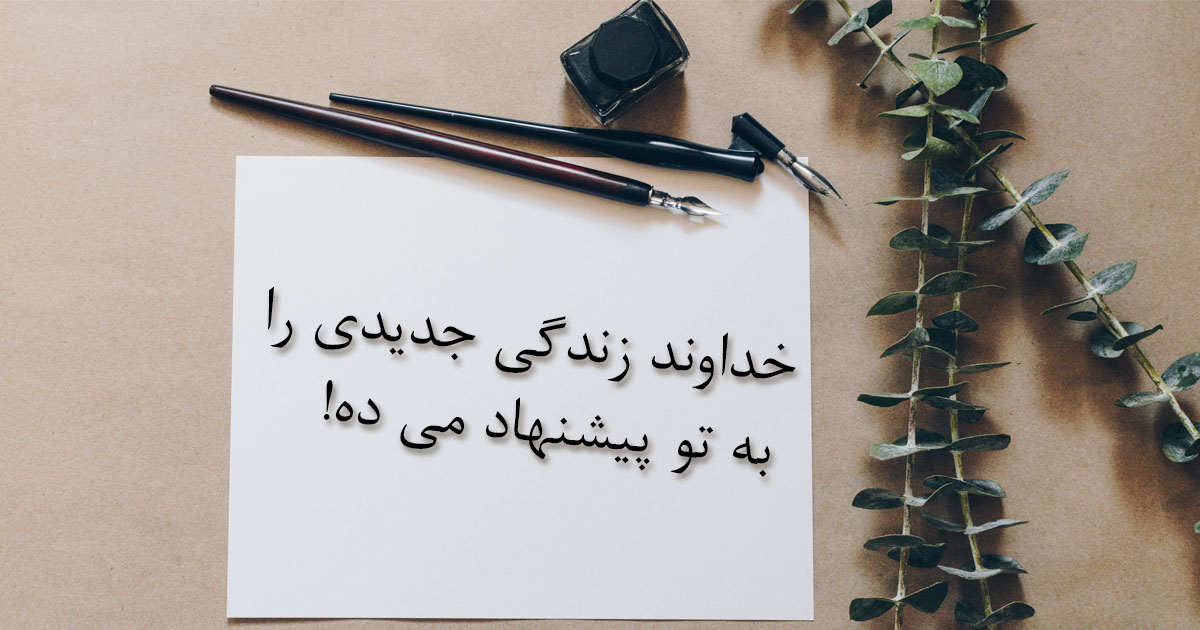 خداوند زندگی جدیدی را
به تو پیشنهاد می ده!